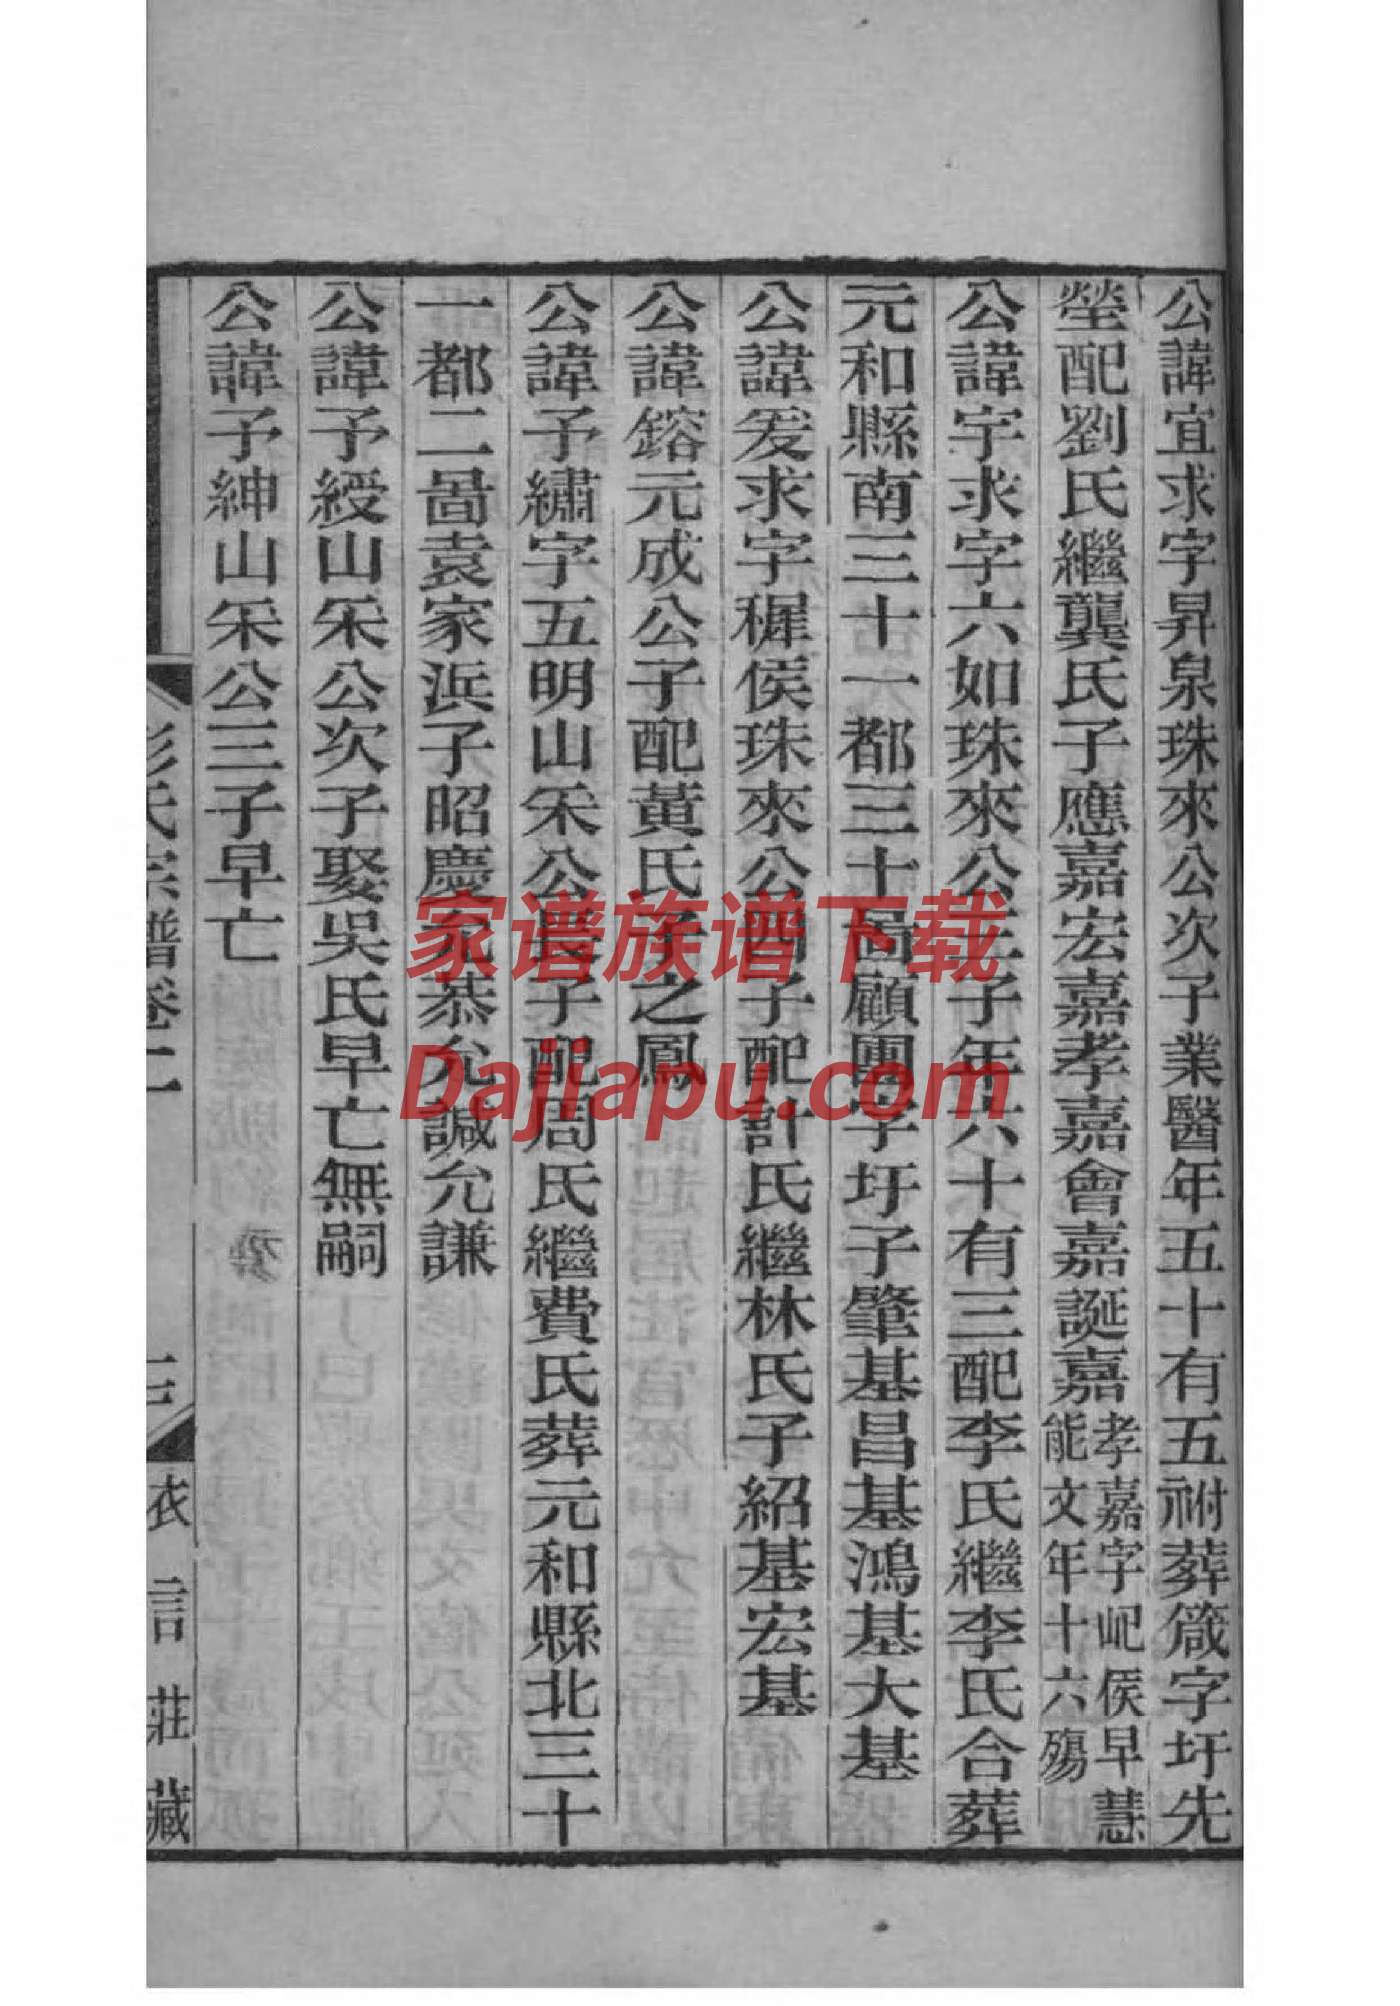 公諱宜求字昇泉珠來公次子業醫年五十有五祔葬箴字圩先
塋配劉氏繼龔氏子應嘉宏嘉孝嘉會嘉誕嘉孝嘉字屺侯早慧能文年十六殤
公諱宇求字六如珠來公三子年六十有三配李氏繼李氏合葬
元和縣南三十一都三十啚顧團字圩子肇基昌基鴻基大基
公諱爰求字穉侯珠來公四子配計氏繼林氏子紹基宏基
公諱鎔元成公子配黃氏子之鳳
公諱予繡字五明山釆公長子配周氏繼費氏葬元和縣北三十
一都二啚袁家浜子昭慶允恭允諴允謙
公諱予綬山釆公次子娶吳氏早亡無嗣
公諱予紳山釆公三子早亡
彭氏宗譜卷二 三 衣言莊藏
家谱族谱下载
Dajiapu.com